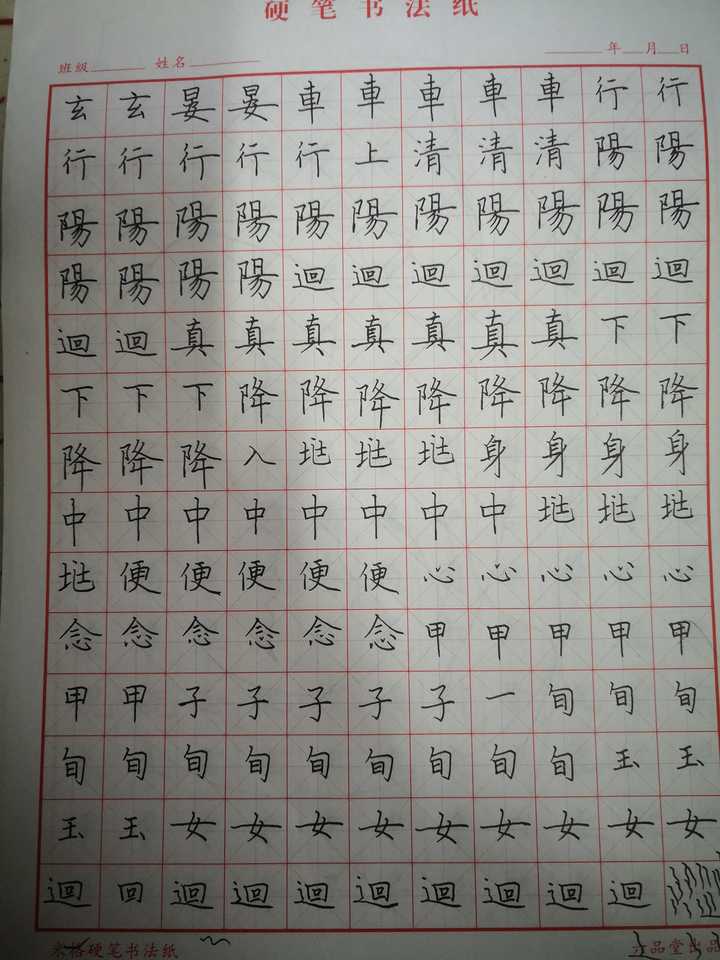 硬笔书法纸
班级 姓名 年 月 日
玄玄晏晏車車車車車行行
行行行行行上清清清陽陽
陽陽陽陽陽陽陽陽陽陽陽
陽陽陽陽迴迴迴迴迴迴迴
迴迴真真真真真真真下下
下下下降降降降降降降降
降降降入身身身身
中中中中中中中中
便便便便便心心心心心
念念念念念念甲甲甲甲甲
甲甲子子子子子一旬旬旬
旬旬旬旬旬旬旬旬旬玉玉
玉玉女女女女女女女女女
迴回迴迴迴迴迴迴迴迴
米格硬笔书法纸 品堂出品